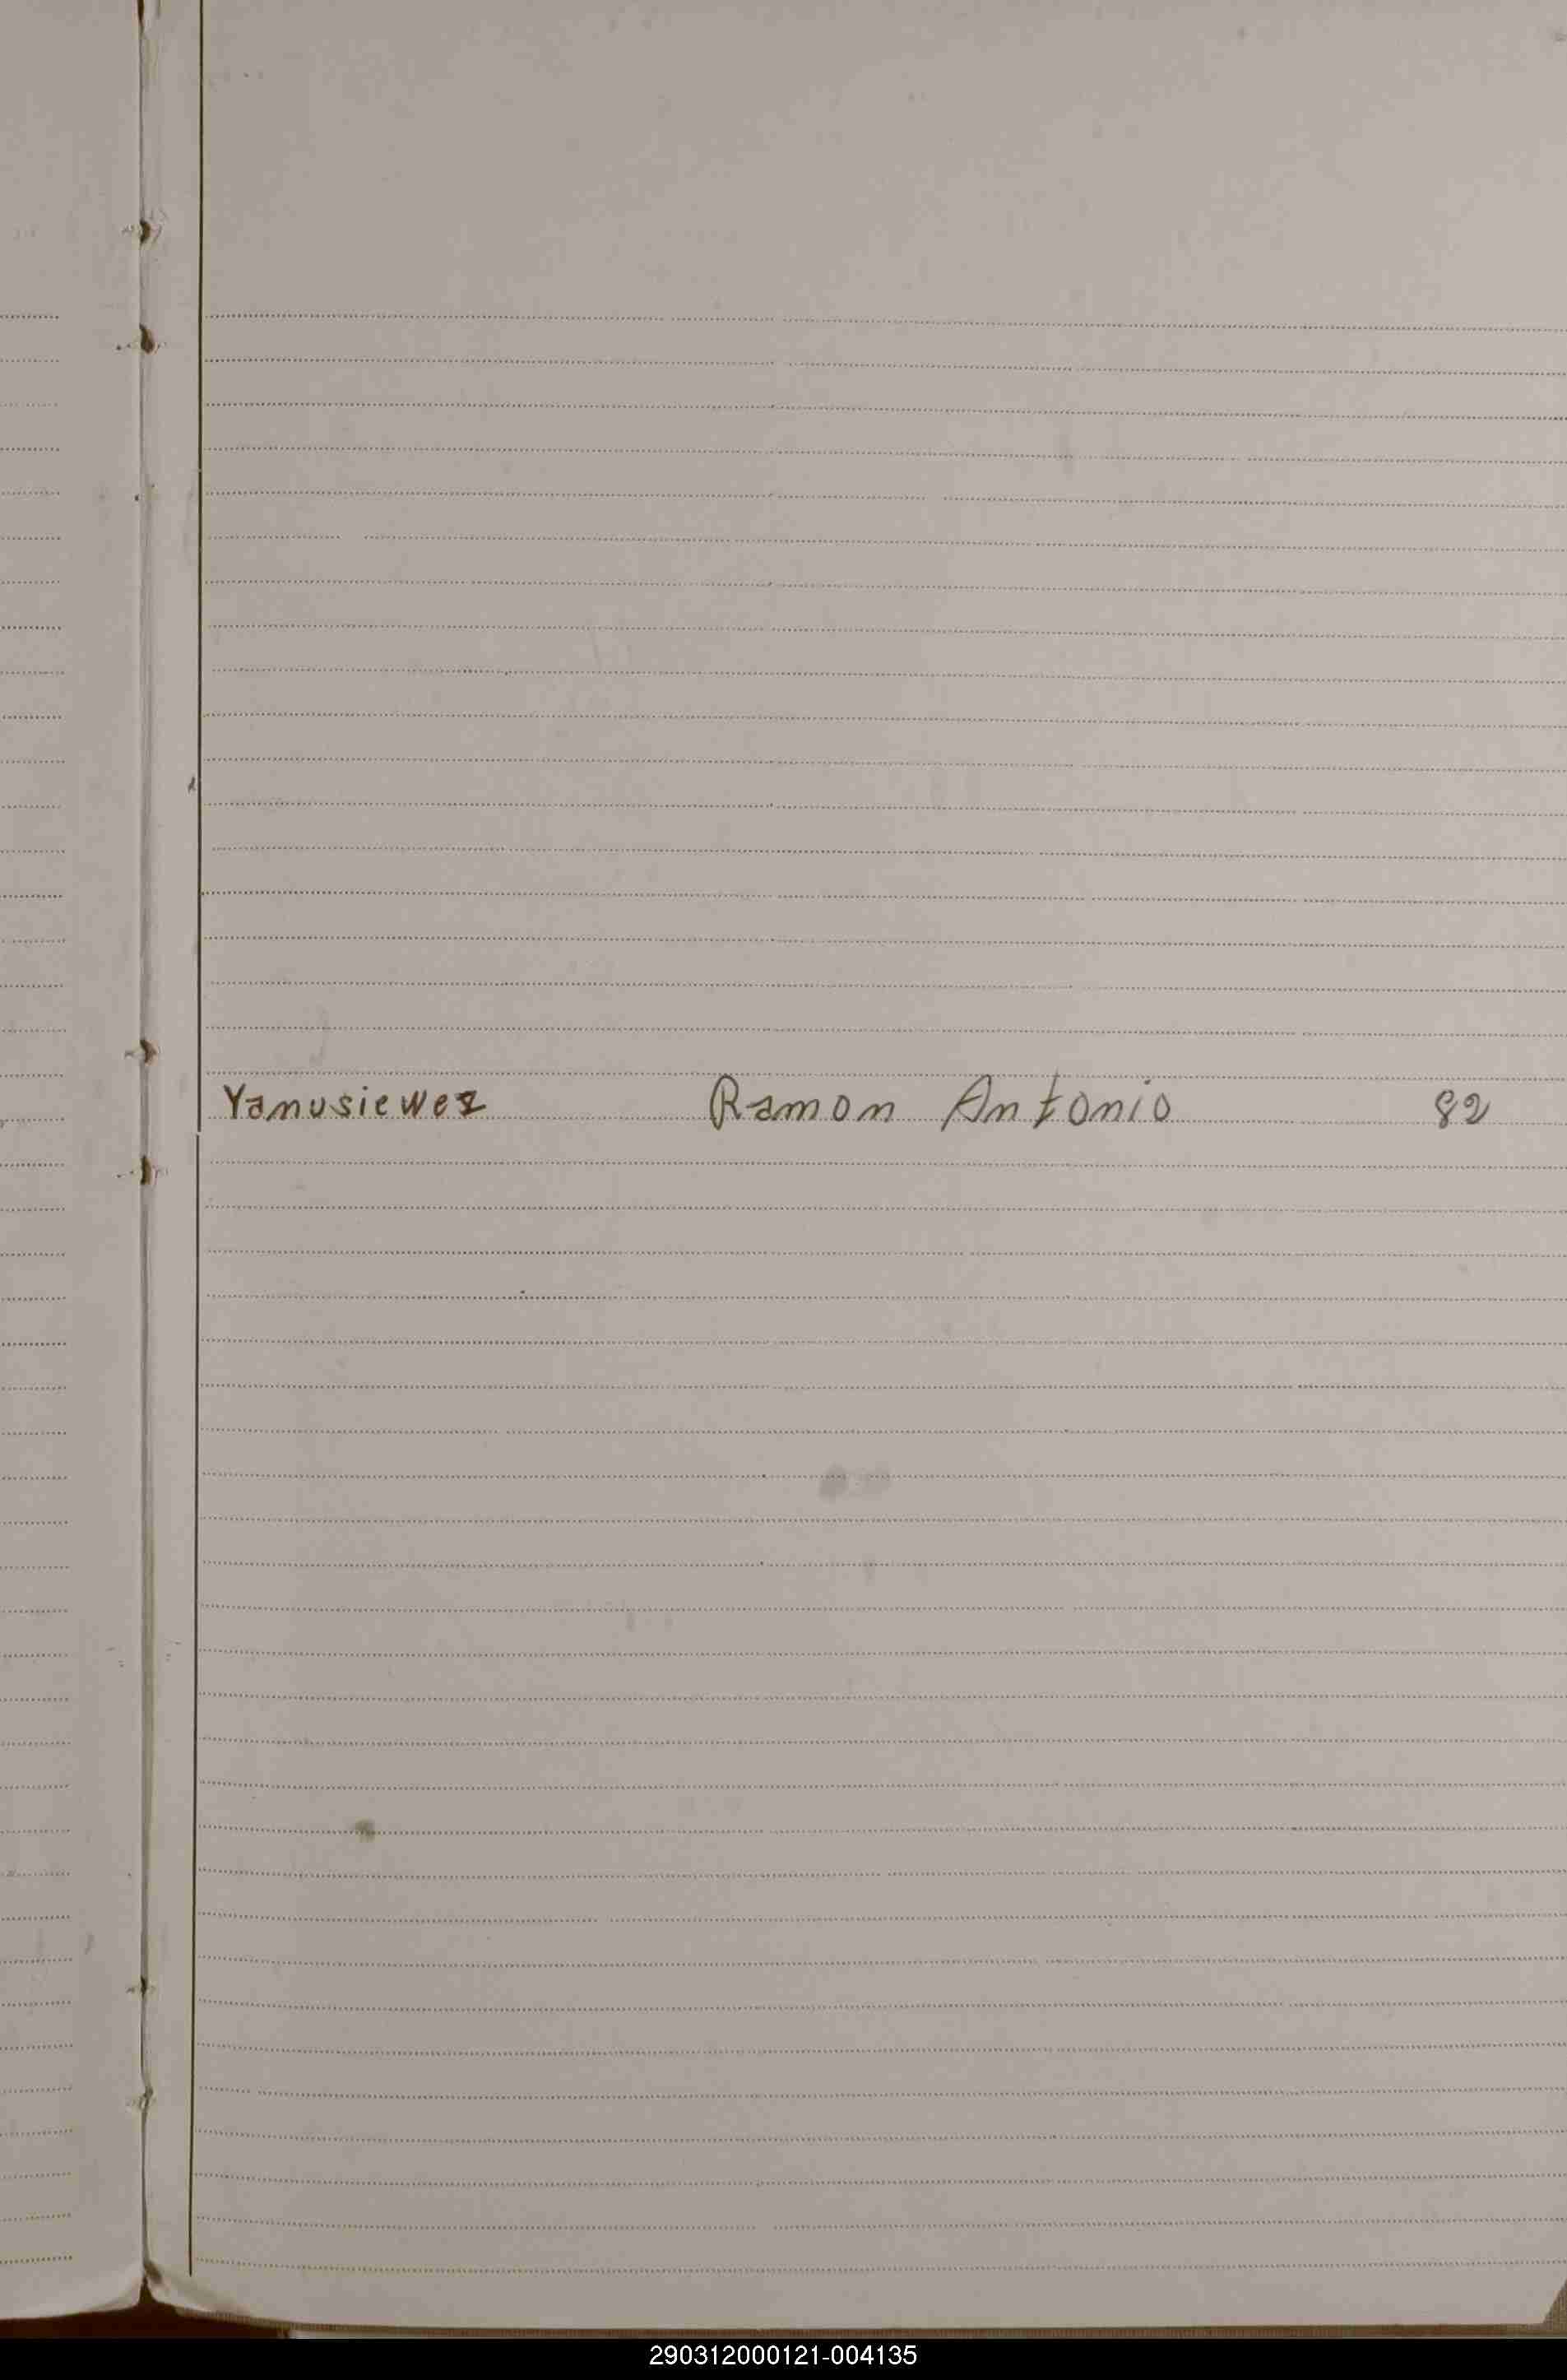 Yanusiewez Ramon Antonio 82
290312000121-004135